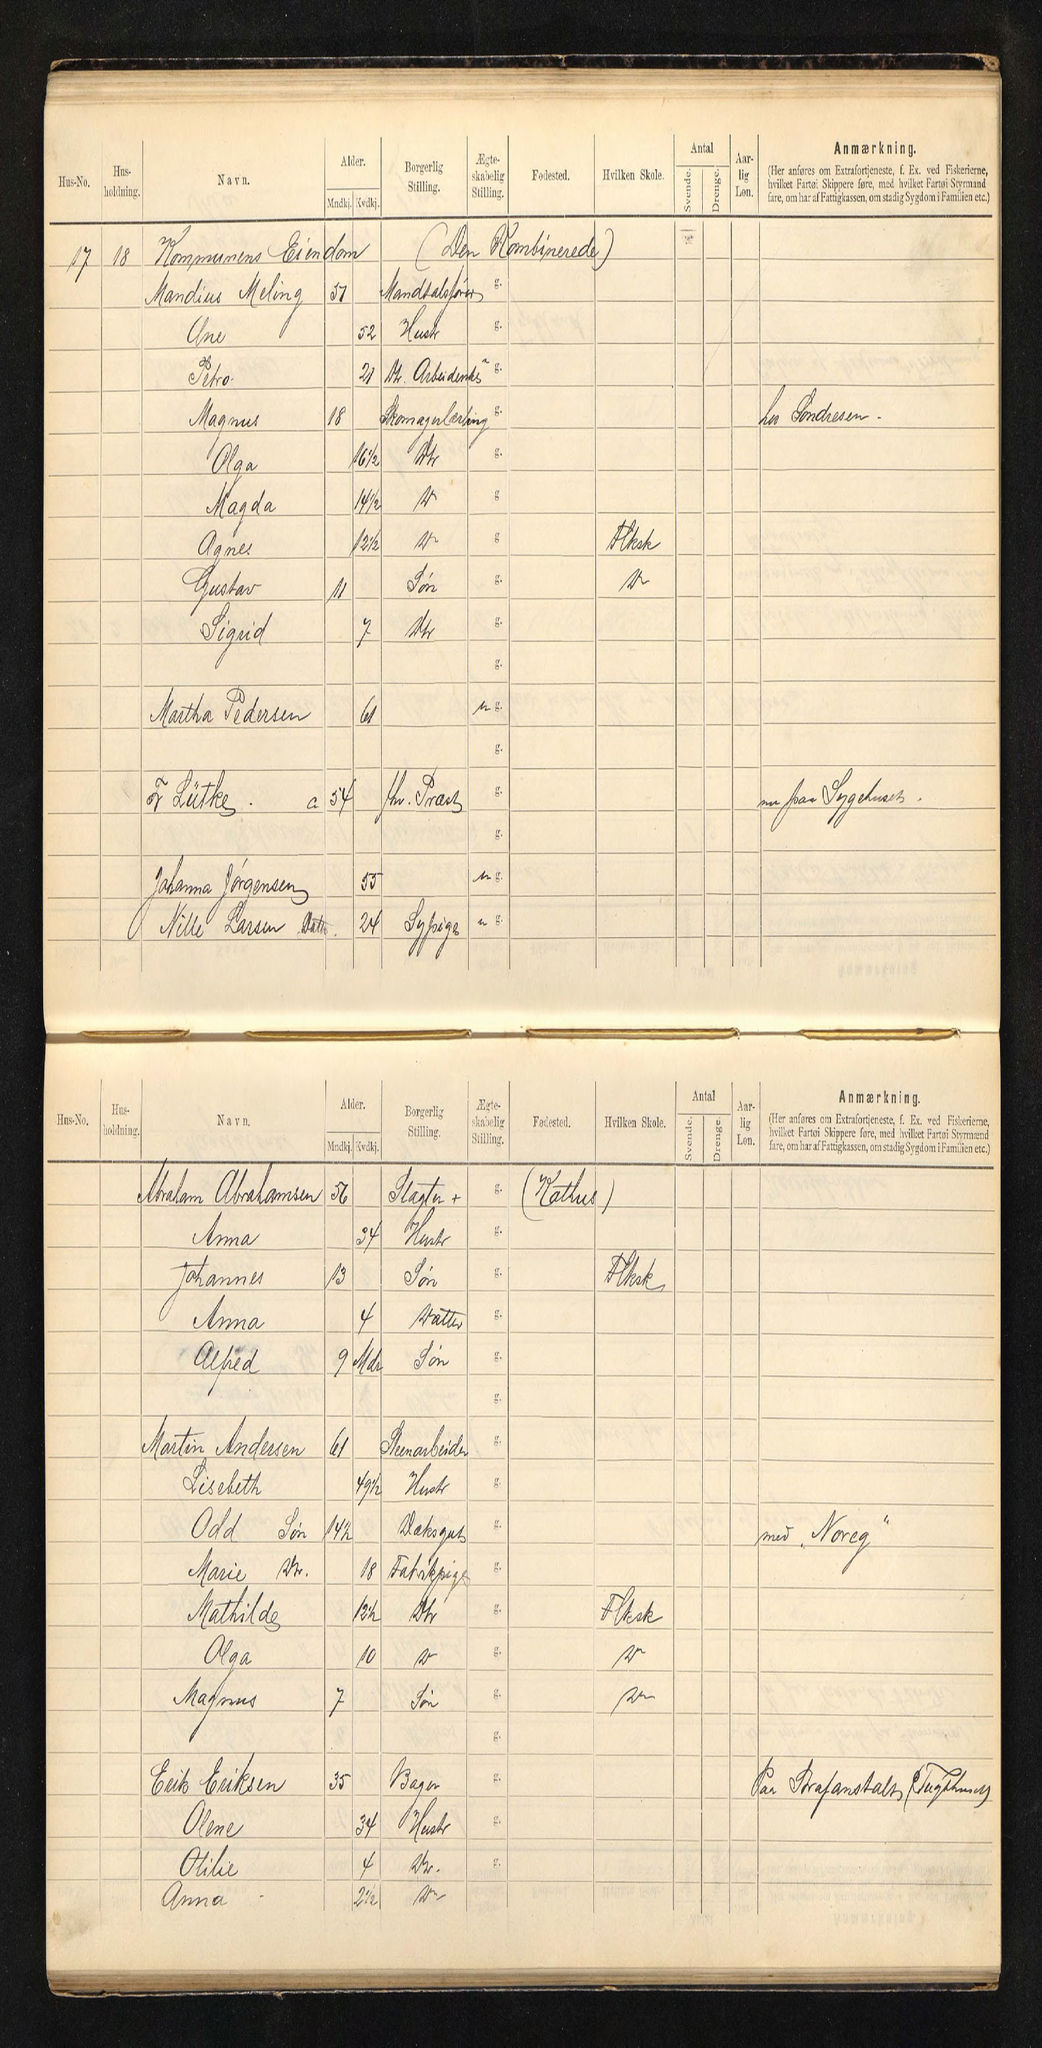 Hus-No. Hus-holdning. Navn. Alder. Mndkj. Kvdkj. Borgerlig Stilling. Ægte-skabelig Stilling. Fødested. Hvilken Skole. Antal Svende. Drenge. Aar-lig Løn. Anmærkning.
(Her anføres om Extrafortjeneste, f. Ex. ved Fiskerierne, hvilket Fartøi Skippere føre, med hvilket Fartøi Styrmænd fare, om har af Fattigkassen, om stadig Sygdom i Familien etc.)
17 18 Kommunens Eiendom (Den Kombinerede)
Mandius Meling 57 Mandtalsfører g.
Ane 52 Hustr g.
Petro 21 Dtr. Arbeiderske g.
Magnus 18 Skomagerlærling g. hos Sondresen.
Olga 16½ Dtr g.
Magda 14½ Do g
Agnes 12½ Do g Flksk
Gustav 11 Søn g. Do
Sigrid 7 Dtr g.
g.
Martha Pedersen 61 u g.
g.
Fr Lütke. c 54 fhv. Præst g. nu paa Sygehuset.
g.
Johanna Jørgensen 55 u g.
Nille Larsen Datter. 24 Sypige u g.
Hus-No. Hus-holdning. Navn. Alder. Mndkj. Kvdkj. Borgerlig Stilling. Ægte-skabelig Stilling. Fødested. Hvilken Skole. Antal Svende. Drenge. Aar-lig Løn. Anmærkning.
(Her anføres om Extrafortjeneste, f. Ex. ved Fiskerierne, hvilket Fartøi Skippere føre, med hvilket Fartøi Styrmænd fare, om har af Fattigkassen, om stadig Sygdom i Familien etc.)
Abraham Abrahamsen 56 Slagter + g. (Kathus)
Anna 34 Hustr g.
Johannes 13 Søn g. Flksk
Anna 4 Datter g.
Alfred 9 Mdr Søn g.
g.
Martin Andersen 61 Stenarbeider g.
Lisebeth 49½ Hustr g.
Odd Søn 14½ Dæksgut g. med "Noreg"
Marie Dtr. 18 Fabrikpige g.
Mathilde 12½ Dtr g. Flksk
Olga 10 Do g. Do
Magnus 7 Søn g. Do
g.
Erik Eriksen 35 Bager g. Paa Strafanstalt (Tugthuset)
Olene 34 Hustr g.
Otilie 4 Dtr. g.
Anna 2½ Do